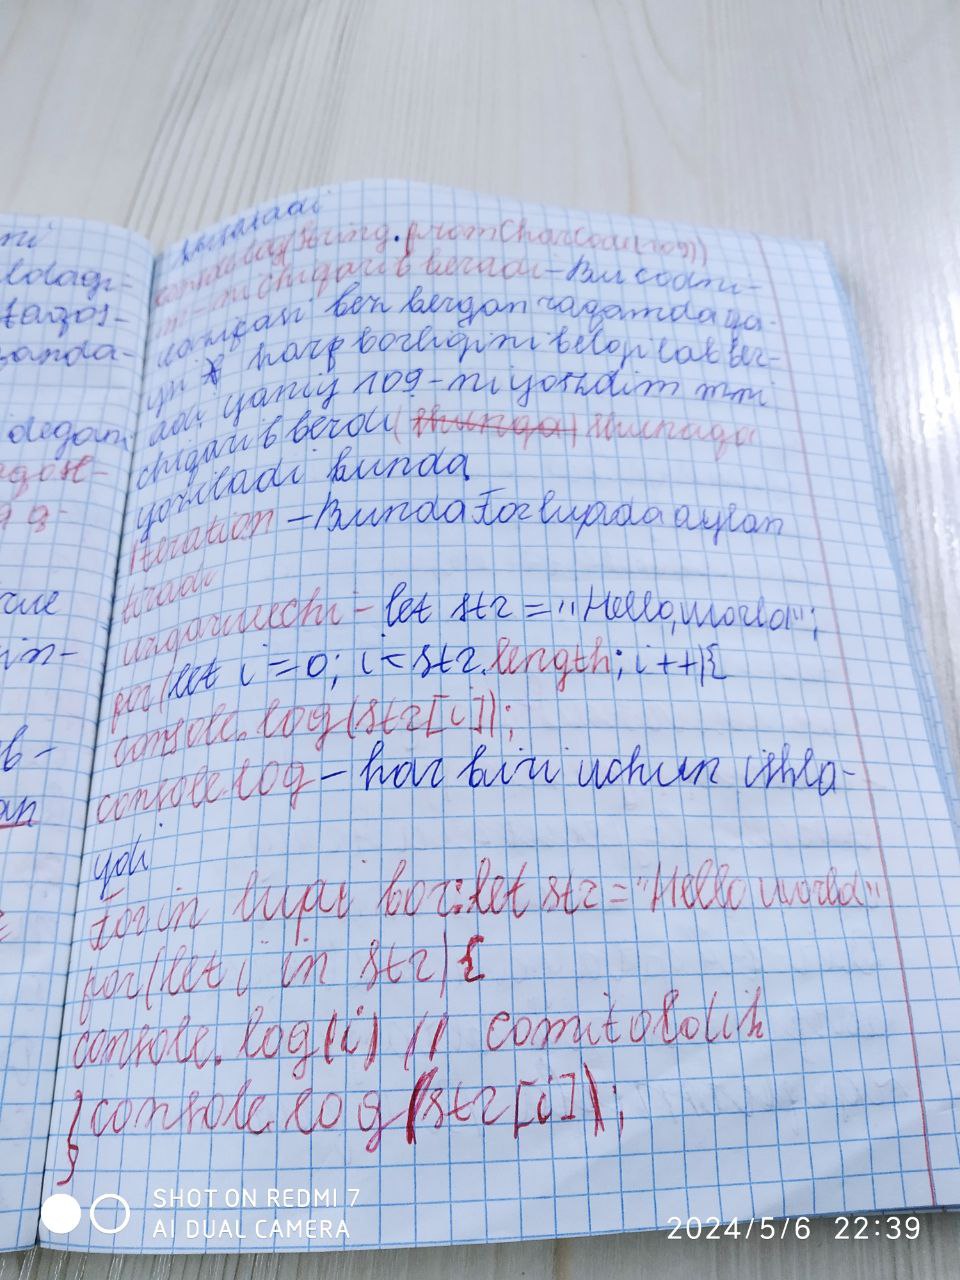 ni
ldagi-
tagos-
zanda-
degan
agost-
a g-
rule
in-
ab-
an
console.log(String.fromCharCode(109))
m-ni chiqarib beradi - Bu codni-
ben bergan raqamda qa-
ysi harf borligini belgilab ber-
adi yaniy 109-ni yozdim m ni
chiqarib berdi (shunga) shunaqa
yoziladi bunda
Iteration - Bunda For lupada aylan
tiradi
urganuvchi - let str = "Hello, world";
for(let i=0; i<str.length; i++){
console.log(str[i]);
console.log - har biri uchun ishla-
ydi
For in lupi bor: let str = "Hello world"
for(let i in str){
console.log(i) //
} console.log(str[i]);
}
SHOT ON REDMI 7
AI DUAL CAMERA
2024/5/6 22:39